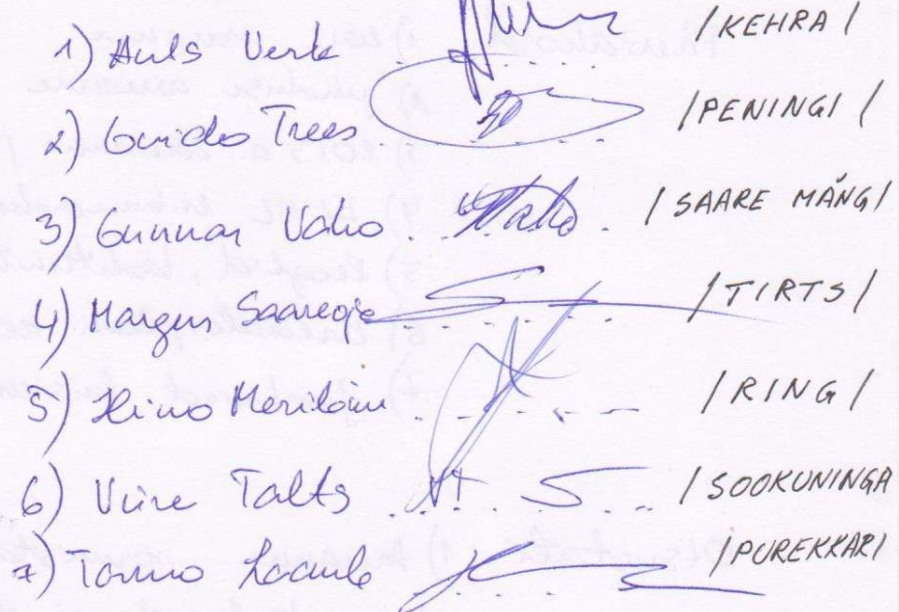 1) Ants Verk /KEHRA/
2) Guido Trees /PENINGI/
3) Gunnar Vaho /SAARE MÄNG/
4) Margus Saareoja /TIRTS/
5) Heino Meriläin /RING/
6) Viire Talts /SOOKUNINGA
7) Tarmo /PUREKKARI